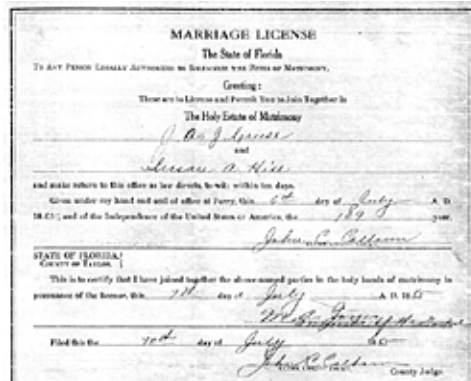 MARRIAGE LICENSE
The State of Florida
TO ANY PERSON LEGALLY AUTHORIZED TO SOLEMNIZE THE RITES OF MATRIMONY,
Greeting:
These are to License and Permit You to Join Together in
The Holy Estate of Matrimony
and
Susan A
and make return to this office as law directs, to-wit: within ten days.
Given under my hand and seal of office at Perry, this 6th day of July A. D.
and of the Independence of the United States of America, the year.
John C. Calhoun
STATE OF FLORIDA,
COUNTY OF TAYLOR.
This is to certify that I have joined together the above named parties in the holy bands of matrimony in
pursuance of the license, this 7th day of July A. D.
Filed this the 10th day of July
John C Calhoun
County Judge.